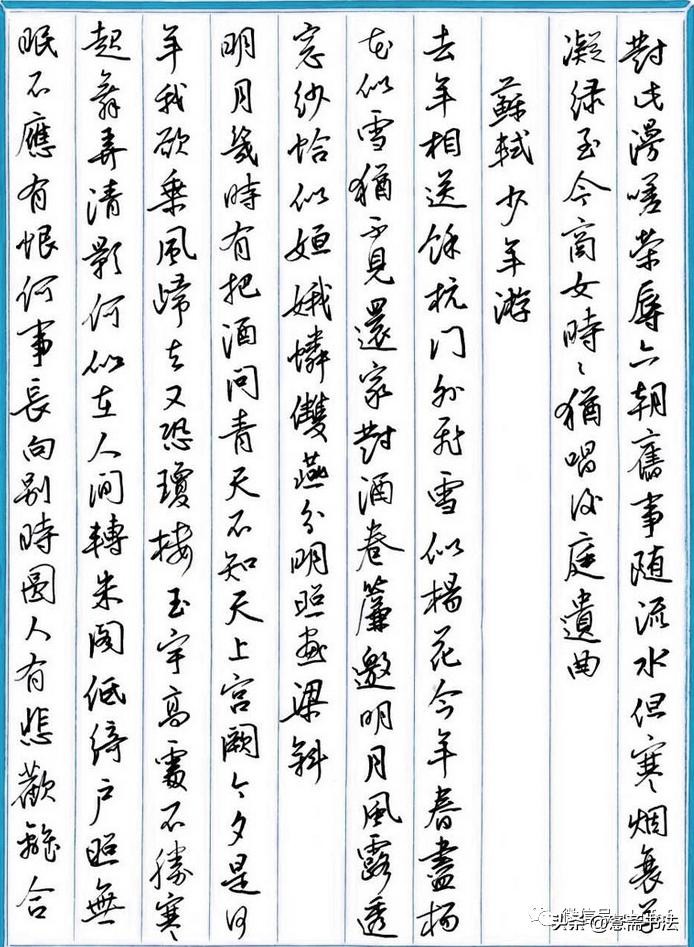 對此漫嗟榮辱六朝舊事随流水但寒烟衰草
凝绿至今商女時々猶唱後庭遺曲
蘇軾少年游
去年相送餘杭门外飛雪似楊花今年春盡楊
花似雪猶不見還家對酒卷簾邀明月風露透
窓紗恰似姮娥憐雙燕分明照畫梁斜
明月幾時有把酒问青天不知天上宫闕今夕是何
年我欲乗風歸去又恐瓊楼玉宇高處不勝寒
起舞弄清影何似在人间轉朱阁低绮户照無
眠不應有恨何事長向别時圆人有悲歡離合
头条@慧斋书法